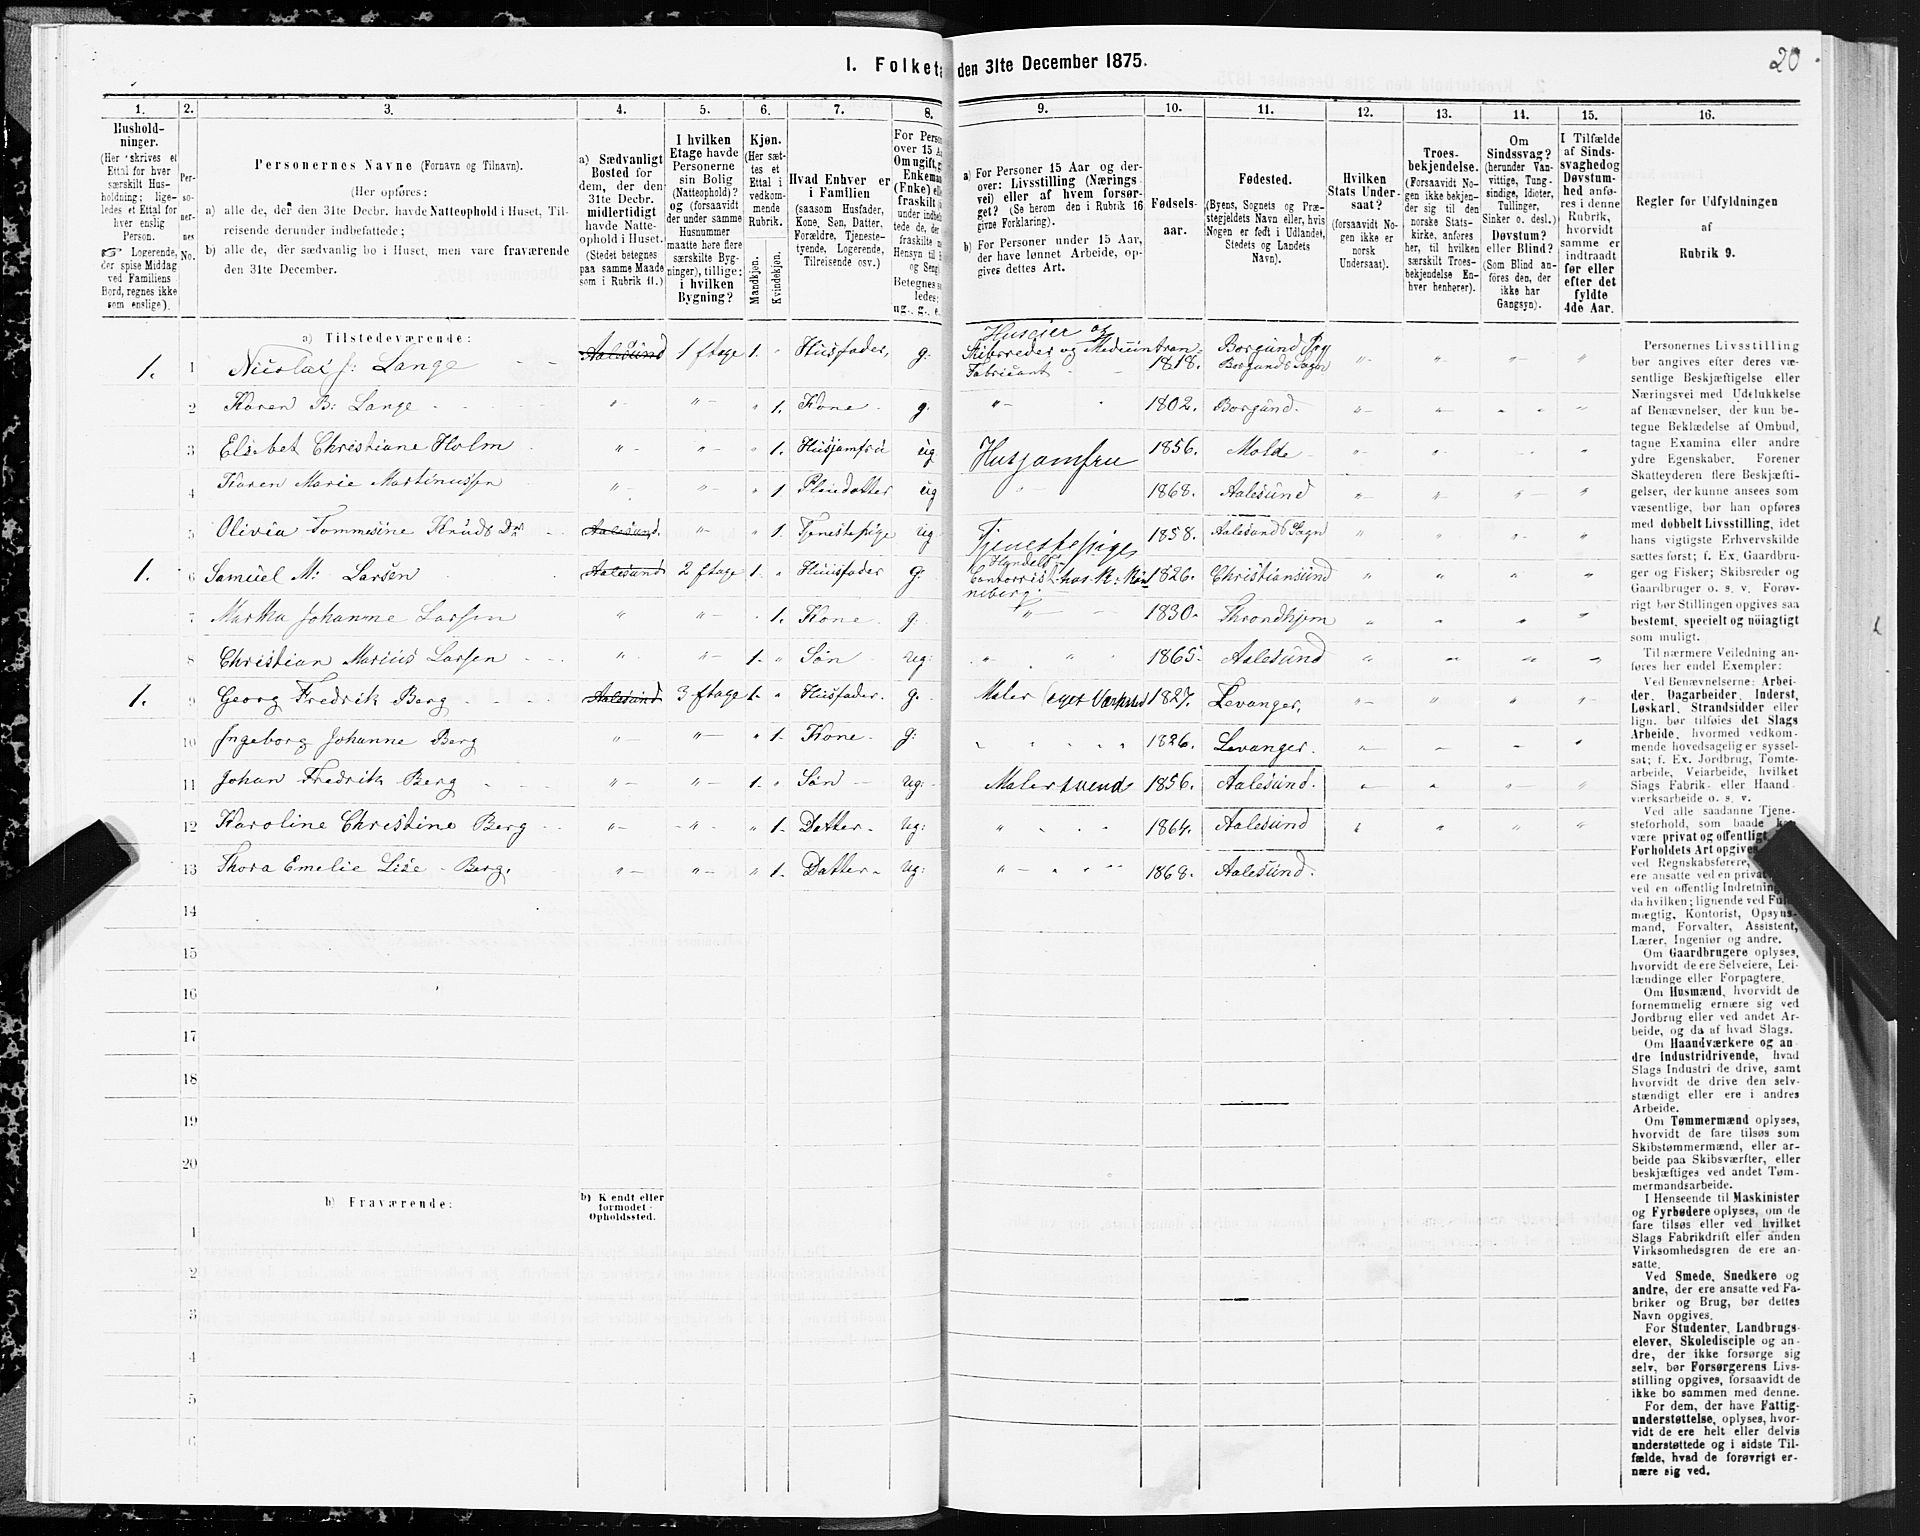 20
I. Folketa den 31te December 1875.
1. 2. 3. 4. 5. 6. 7. 8. 9. 10. 11. 12. 13. 14. 15. 16.
Hushold-
ninger.
(Her skrives et
Ettal for hver
særskilt Hus-
holdning; lige-
ledes et Ettal for
hver enslig
Person.
Logerende,
der spise Middag
ved Familiens
Bord, regnes ikke
som enslige).
Per-
so-
ner-
nes
No.
Personernes Navne (Fornavn og Tilnavn).
(Her opføres:
a) alle de, der den 31te Decbr. havde Natteophold i Huset, Til-
reisende derunder indbefattede;
b) alle de, der sædvanlig bo i Huset, men vare fraværende
den 31te December.
a) Sædvanligt
Bosted for
dem, der den
31te Decbr.
midlertidigt
havde Natte-
ophold i Huset.
(Stedet betegnes
paa samme Maade
som i Rubrik 11.)
I hvilken
Etage havde
Personerne
sin Bolig
(Natteophold)?
og (forsaavidt
der under samme
Husnummer
maatte høre flere
særskilte Byg-
ninger), tillige:
i hvilken
Bygning?
Kjøn.
(Her sæt-
tes et
Ettal i
vedkom-
mende
Rubrik.
Mandkjøn.
Kvindekjøn.
Hvad Enhver er
i Familien
(saasom Husfader,
Kone, Søn, Datter,
Forældre, Tjeneste-
tyende, Logerende,
Tilreisende osv.)
For Perso
over 15 A
Om ugift, g
Enkeman
(Enke) ell
fraskilt
under indbe
tede de, de
fraskilte
Hensyn til
og Seng
Betegnes s
ledes:
ug., g., e.
a) For Personer 15 Aar og der-
over: Livsstilling (Nærings-
vei) eller af hvem forsør-
get? (Se herom den i Rubrik 16
givne Forklaring).
b) For Personer under 15 Aar,
der have lønnet Arbeide, op-
gives dettes Art.
Fødsels-
aar.
Fødested.
(Byens, Sognets og Præ-
stegjeldets Navn eller, hvis
Nogen er født i Udlandet,
Stedets og Landets
Navn).
Hvilken
Stats Under-
saat?
(forsaavidt No-
gen ikke er
norsk
Undersaat).
Troes-
bekjendelse.
(Forsaavidt No-
gen ikke bekjen-
der sig til den
norske Stats-
kirke, anføres
her, til hvilken
særskilt Troes-
bekjendelse En-
hver henhører).
Om
Sindssvag?
(herunder Van-
vittige, Tung-
sindige, Idioter,
Tullinger,
Sinker o. desl.)
Døvstum?
eller Blind?
(Som Blind an-
føres den, der
ikke har
Gangsyn).
I Tilfælde
af Sinds-
svaghed og
Døvstum-
hed anfø-
res i denne
Rubrik,
hvorvidt
samme er
indtraadt
før eller
efter det
fyldte
4de Aar.
Regler for Udfyldningen
af
Rubrik 9.
a) Tilstedeværende:
1. 1 Nicolai J: Lange Aalesund 1 Etage 1. Husfader, g. Huseier og Skibsreder og Medicintran- Fabricant 1818. Borgund Pg Borgunds Sogn
2 Karen B: Lange " " " 1. Kone g. " 1802. Borgund.
3 Elisbet Christiane Holm " " " 1. Husjomfru ug Husjomfru 1856. Molde
4 Karen Marie Martinussen " " " 1 Pleiedatter ug " 1868. Aalesund
5 Olivia Tommesine Knuds Dr Aalesund. " " 1. Tjenestepige ug Tjenestepige 1858. Aalesunds Sogn
1. 6 Samuel M: Larsen Aalesund 2 Etage 1 " Huusfader g. Handels Contorrist hos R: Rønneberg. 1826. Christiansund
7 Martha Johanne Larsen " " " 1. Kone g. " 1830. Throndhjem
8 Christian Marius Larsen " " 1. " Søn ug: " 1865. Aalesund
1. 9 Georg Fredrik Berg Aalesund 3 Etage 1. " Husfader. g. Maler (eget Værksted 1827. Levanger,
10 Ingeborg Johanne Berg " " " 1. Kone g: " 1826. Levanger.
11 Johan Fredrik Berg " " 1. " Søn ug: Malersvend 1856. Aalesund.
12 Karoline Christine Berg " " " 1. Datter ug: " 1864. Aalesund
13 Thora Emelie Lise Berg. " " " 1. Datter ug: " 1868. Aalesund.
14
15
16
17
18
19
20
b) Fraværende:
b) Kjendt eller
formodet
Opholdssted.
1
2
3
4
5
6
Personernes Livsstilling
bør angives efter deres væ-
sentlige Beskjæftigelse eller
Næringsvei med Udelukkelse
af Benævnelser, der kun be-
tegne Beklædelse af Ombud,
tagne Examina eller andre
ydre Egenskaber. Forener
Skatteyderen flere Beskjæfti-
gelser, der kunne ansees som
væsentlige, bør han opføres
med dobbelt Livsstilling, idet
hans vigtigste Erhvervskilde
sættes først; f. Ex. Gaardbru-
ger og Fisker; Skibsreder og
Gaardbruger o. s. v. Forøv-
rigt bør Stillingen opgives saa
bestemt, specielt og nöiagtigt
som muligt.
Til nærmere Veiledning an-
føres her endel Exempler:
Ved Benævnelserne: Arbei-
der, Dagarbeider, Inderst,
Løskarl, Strandsidder eller
lign. bør tilføies det Slags
Arbeide, hvormed vedkom-
mende hovedsagelig er syssel-
sat; f. Ex. Jordbrug, Tomte-
arbeide, Veiarbeide, hvilket
Slags Fabrik- eller Haand-
værksarbeide o. s. v.
Ved alle saadanne Tjene-
steforhold, som baade
være privat og offentlig,
Forholdets Art opgives
ved Regnskabsførere,
ere ansatte ved en privat
ved en offentlig Indretning,
da hvilken; lignende ved Fuld-
mægtig, Kontorist, Opsyns-
mand, Forvalter, Assistent,
Lærer, Ingeniør og andre.
Om Gaardbrugere oplyses,
hvorvidt de ere Selveiere, Lei-
lændinge eller Forpagtere.
Om Husmænd, hvorvidt de
fornemmelig ernære sig ved
Jordbrug eller ved andet Ar-
beide, og da af hvad Slags.
Om Haandværkere og an-
dre Industridrivende, hvad
Slags Industri de drive, samt
hvorvidt de drive den selv-
stændigt eller ere i andres
Arbeide.
Om Tømmermænd oplyses,
hvorvidt de fare tilsøs som
Skibstømmermænd, eller ar-
beide paa Skibsværfter, eller
beskjæftiges ved andet Tøm-
mermandsarbeide.
I Henseende til Maskinister
og Fyrbødere oplyses, om de
fare tilsøs eller ved hvilket
Slags Fabrikdrift eller anden
Virksomhedsgren de ere an-
satte.
Ved Smede, Snedkere og
andre, der ere ansatte ved Fa-
briker og Brug, bør dettes
Navn opgives.
For Studenter, Landbrugs-
elever, Skoledisciple og an-
dre, der ikke forsørge sig
selv, bør Forsørgerens Livs-
stilling opgives, forsaavidt de
ikke bo sammen med denne.
For dem, der have Fattig-
understøttelse, oplyses, hvor-
vidt de ere helt eller delvis
understøttede og i sidste Til-
fælde, hvad de forøvrigt er-
nære sig ved.